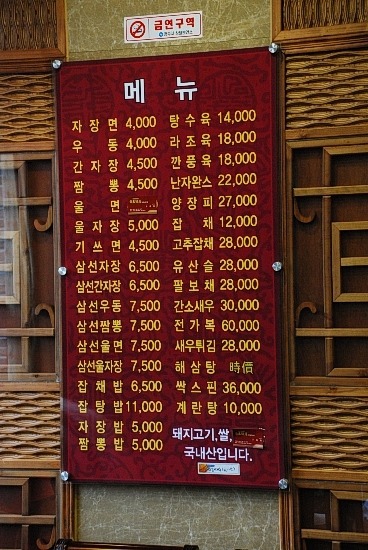 금연구역
메 뉴
자장면 4,000
우동 4,000
간자장 4,500
짬뽕 4,500
울면
울자장 5,000
기쓰면 4,500
삼선자장 6,500
삼선간자장 6,500
삼선우동 7,500
삼선짬뽕 7,500
삼선울면 7,500
삼선울자장 7,500
잡채밥 6,500
잡탕밥 11,000
자장밥 5,000
짬뽕밥 5,000
탕수육 14,000
라조육 18,000
깐풍육 18,000
난자완스 22,000
양장피 27,000
잡채 12,000
고추잡채 28,000
유산슬 28,000
팔보채 28,000
간소새우 30,000
전가복 60,000
새우튀김 28,000
해삼탕 時價
싹스핀 36,000
계란탕 10,000
돼지고기,쌀,
국내산입니다.